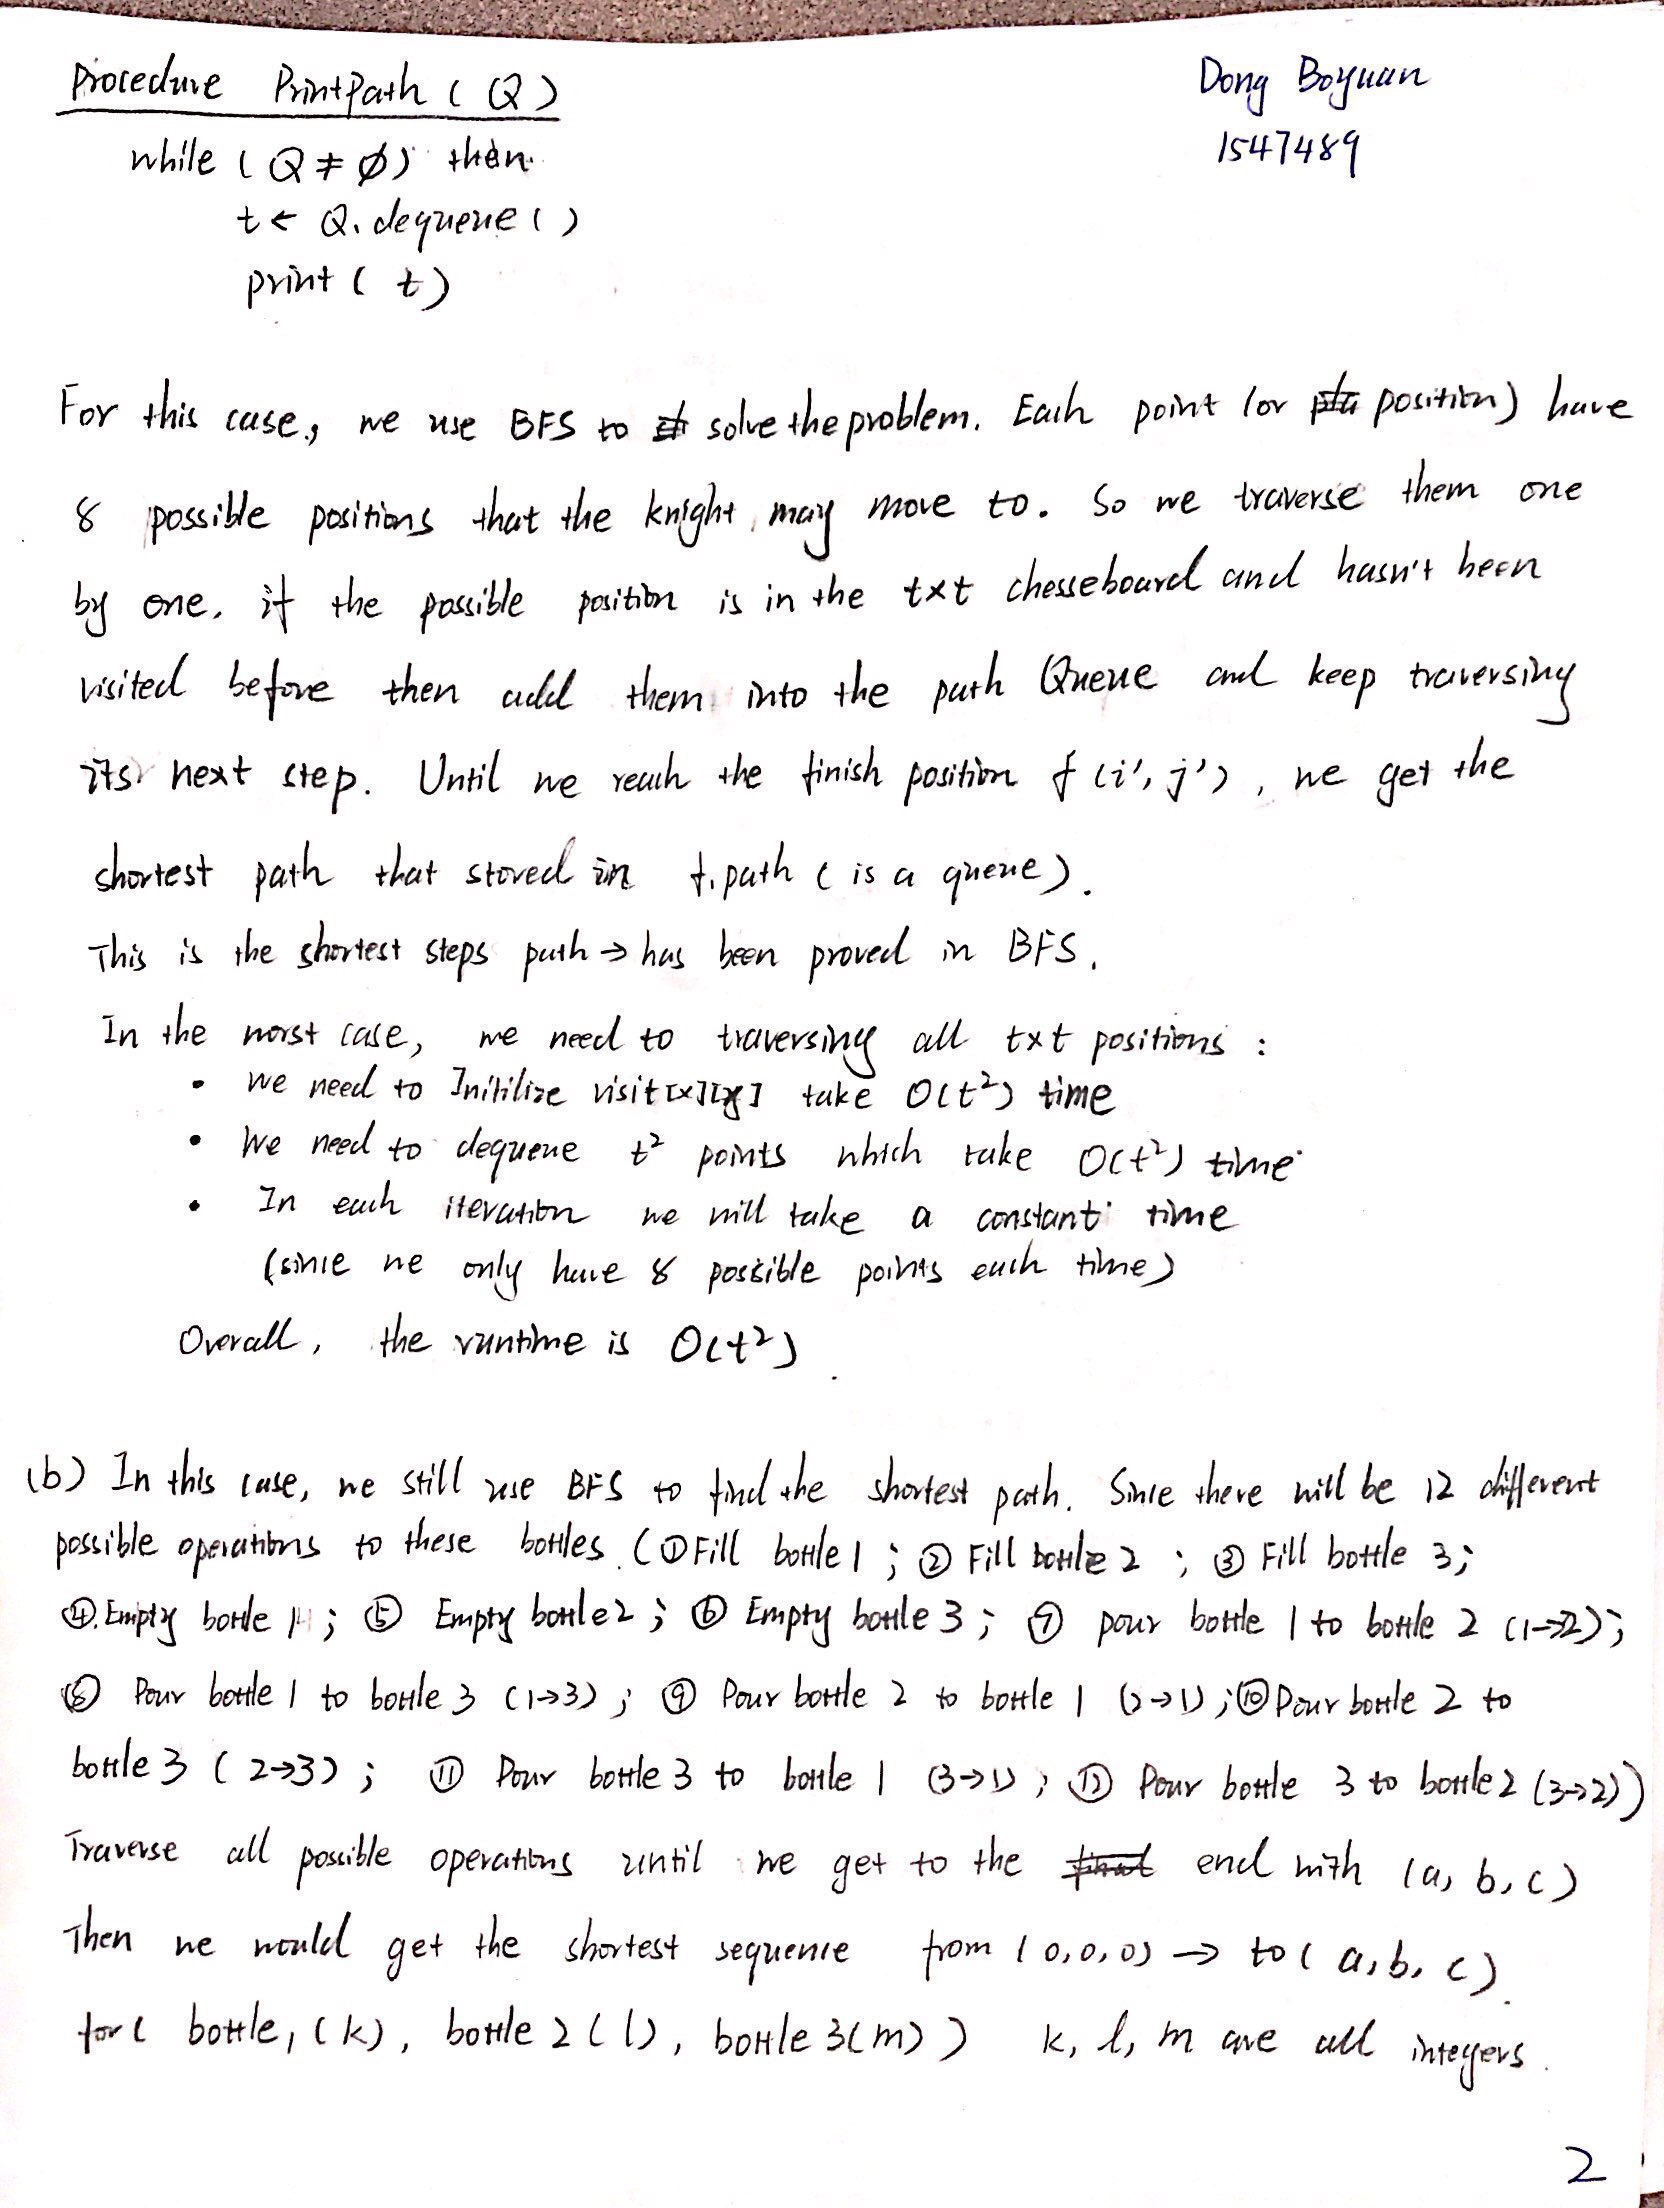 Procedure PrintPath (Q)
Dong Boyuan
1547489
while (Q ≠ ∅) then
t ← Q.dequeue()
print (t)
For this case, we use BFS to solve the problem. Each point (or position) have
8 possible positions that the knight may move to. So we traverse them one
by one. if the possible position is in the txt chesseboard and hasn't been
visited before then add them into the path Queue and keep traversing
its next step. Until we reach the finish position f (i', j'), we get the
shortest path that stored in f.path (is a queue).
This is the shortest steps path → has been proved in BFS.
In the worst case, we need to traversing all txt positions :
• We need to Initilize visit[x][y] take O(t²) time
• We need to dequeue t² points which take O(t²) time
• In each iteration we will take a constant time
(since we only have 8 possible points each time)
Overall, the runtime is O(t²)
(b) In this case, we still use BFS to find the shortest path. Since there will be 12 different
possible operations to these bottles. (① Fill bottle 1 ; ② Fill bottle 2 ; ③ Fill bottle 3;
④ Empty bottle 1 ; ⑤ Empty bottle 2 ; ⑥ Empty bottle 3 ; ⑦ pour bottle 1 to bottle 2 (1→2);
⑧ Pour bottle 1 to bottle 3 (1→3) ; ⑨ Pour bottle 2 to bottle 1 (2→1) ; ⑩ Pour bottle 2 to
bottle 3 (2→3) ; ⑪ Pour bottle 3 to bottle 1 (3→1) ; ⑫ Pour bottle 3 to bottle 2 (3→2))
Traverse all possible operations until we get to the end with (a, b, c)
Then we would get the shortest sequence from (0,0,0) → to (a, b, c).
for ( bottle 1 (k), bottle 2 (l), bottle 3 (m) ) k, l, m are all integers.
2